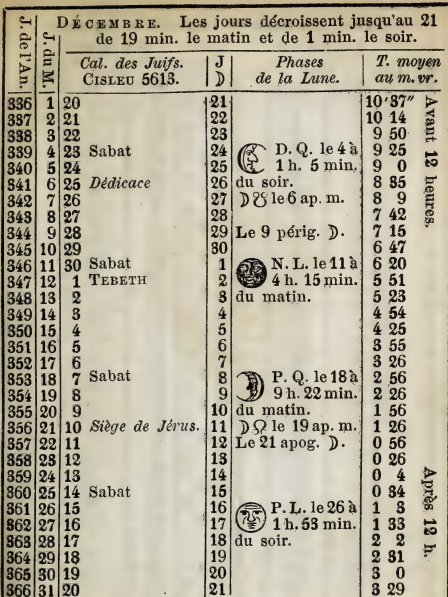 DÉCEMBRE. Les jours décroissent jusqu'au 21
de 19 min. le matin et de 1 min. le soir.
J. de l'An. J. du M. Cal. des Juifs. J Phases T. moyen
CISLEU 5613. D de la Lune. au m. vr.
336 1 20 21 10'37"
337 2 21 22 10 14
338 3 22 23 9 50
339 4 23 Sabat 24 D. Q. le 4 à 9 25
340 5 24 25 1 h. 5 min. 9 0
341 6 25 Dédicace 26 du soir. 8 35
342 7 26 27 ☽☋ le 6 ap. m. 8 9
343 8 27 28 7 42
344 9 28 29 Le 9 périg. ☽. 7 15
345 10 29 30 6 47
346 11 30 Sabat 1 N. L. le 11 à 6 20
347 12 1 TEBETH 2 4 h. 15 min. 5 51
348 13 2 3 du matin. 5 23
349 14 3 4 4 54
350 15 4 5 4 25
351 16 5 6 3 55
352 17 6 7 3 26
353 18 7 Sabat 8 P. Q. le 18 à 2 56
354 19 8 9 9 h. 22 min. 2 26
355 20 9 10 du matin. 1 56
356 21 10 Siège de Jérus. 11 ☽☊ le 19 ap. m. 1 26
357 22 11 12 Le 21 apog. ☽. 0 56
358 23 12 13 0 26
359 24 13 14 0 4
360 25 14 Sabat 15 0 34
361 26 15 16 P. L. le 26 à 1 3
362 27 16 17 1 h. 53 min. 1 33
363 28 17 18 du soir. 2 2
364 29 18 19 2 31
365 30 19 20 3 0
366 31 20 21 3 29
Avant 12 heures.
Après 12 h.